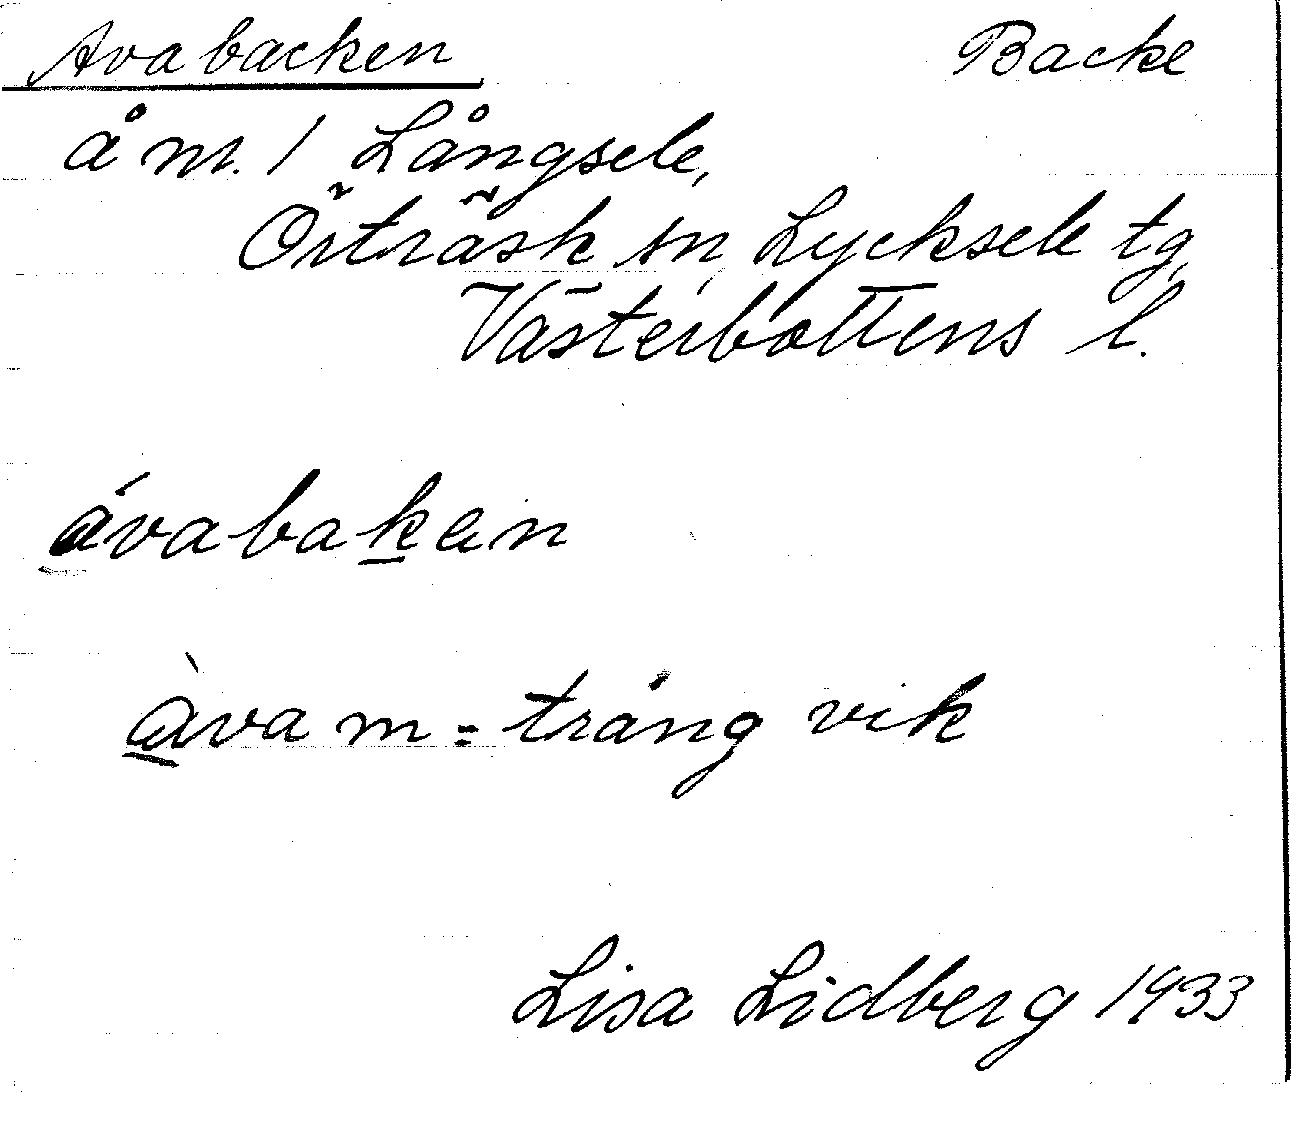 Avabacken Backe
å m. / Långsele,
Örträsk sn, Lycksele tg,
Västerbottens l.
ávabaken
àva m = trång vik
Lisa Lidberg 1933